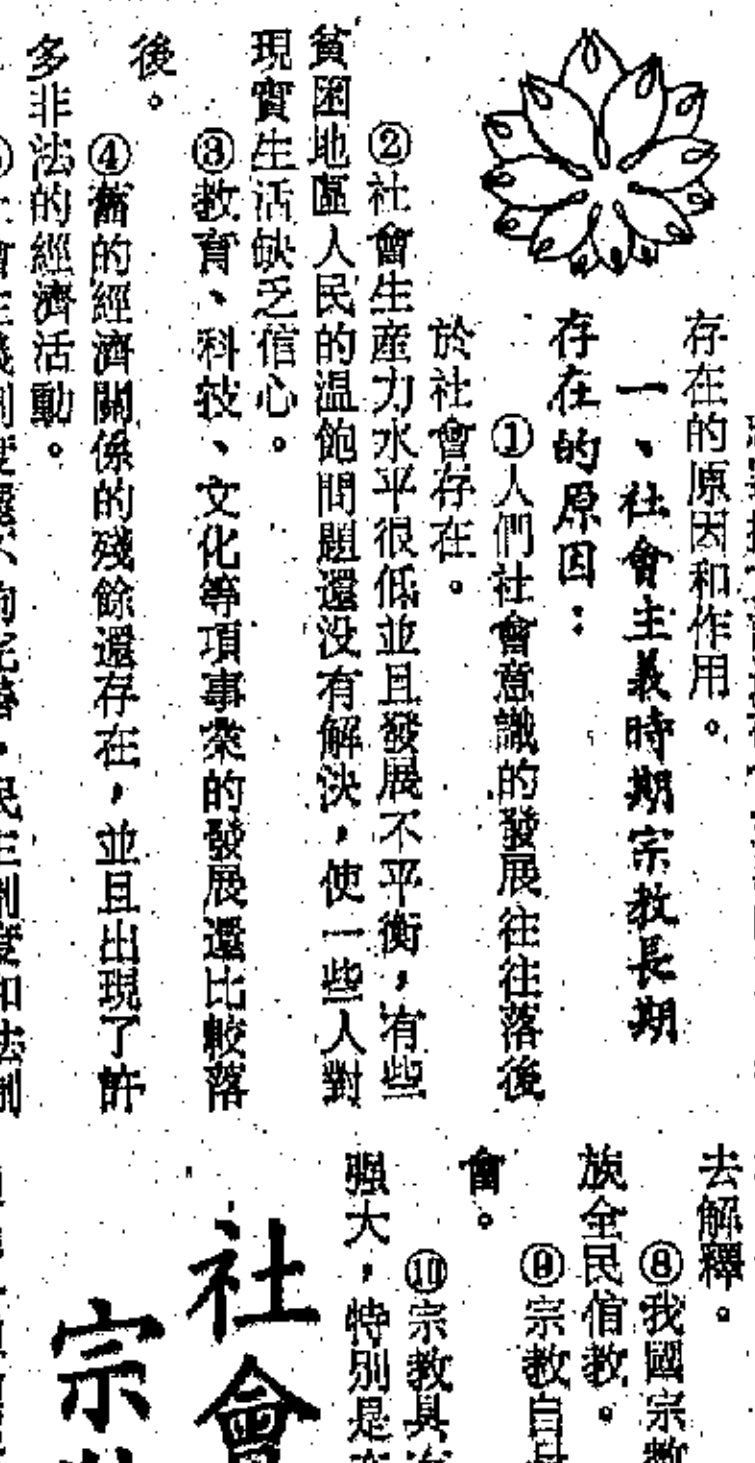 存在的原因和作用。
一、社會主義時期宗教長期
存在的原因：
①人們社會意識的發展往往落後
於社會存在。
②社會生産力水平很低並且發展不平衡，有些
貧困地區人民的温飽問題還没有解決，使一些人對
現實生活缺乏信心。
③教育、科技、文化等項事業的發展還比較落
後。
④舊的經濟關係的殘餘還存在，並且出現了許
多非法的經濟活動。
去解釋。
⑧我國宗教
族全民信教。
⑨宗教自
會。
⑩宗教具
强大，特别是
社會
宗